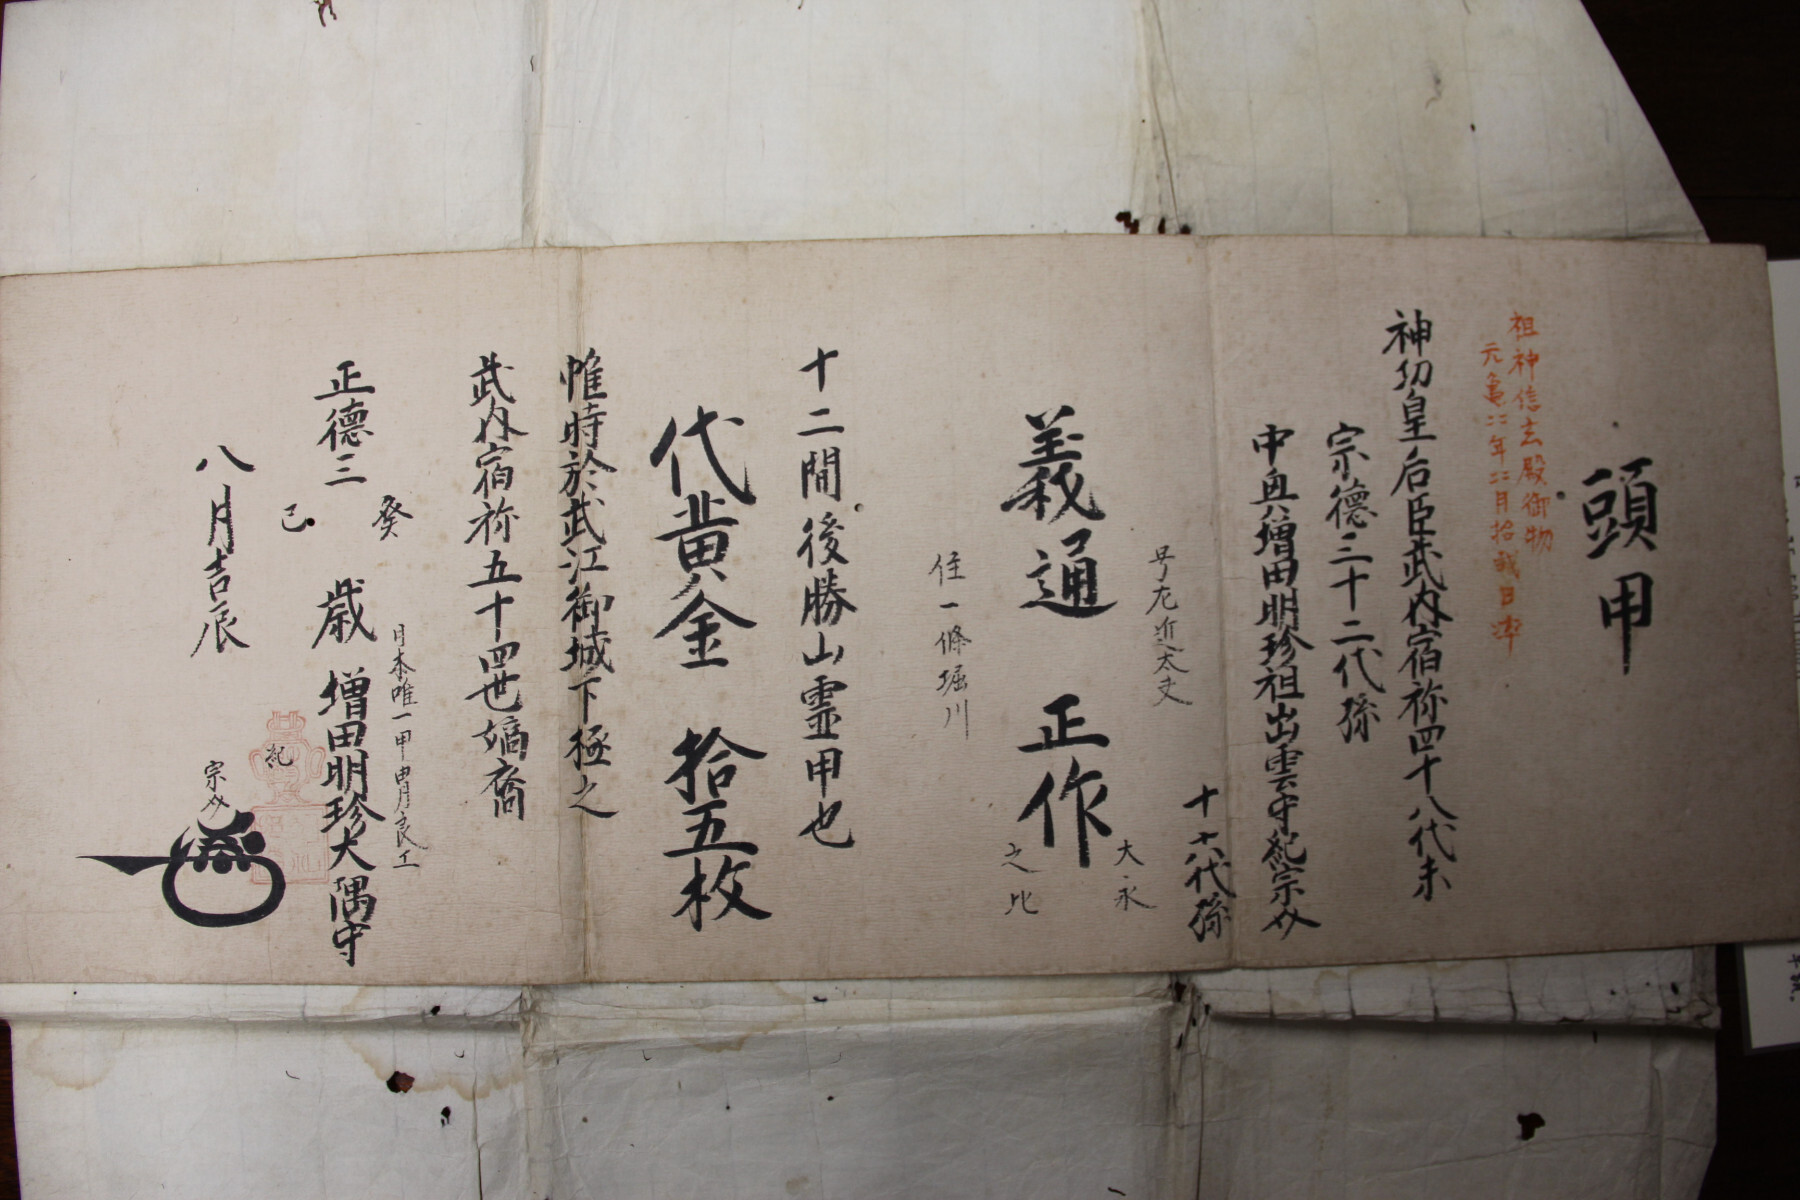 頭甲
祖神信玄殿御物
元亀二二年二二月拾弐日
神功皇后臣武内宿祢四十八代末
宗德三十二代孫
中興増田明珍祖出雲守紀宗介
十六代孫
号左近太夫
義通 正作
大永
之比
住一條堀川
十二間後勝山霊甲也
代黄金 拾五枚
惟時於武江御城下極之
武内宿祢五十四世嫡裔
正德三 癸巳 歳 増田明珍大隅守
日本唯一甲冑良工
八月吉辰
紀
宗介